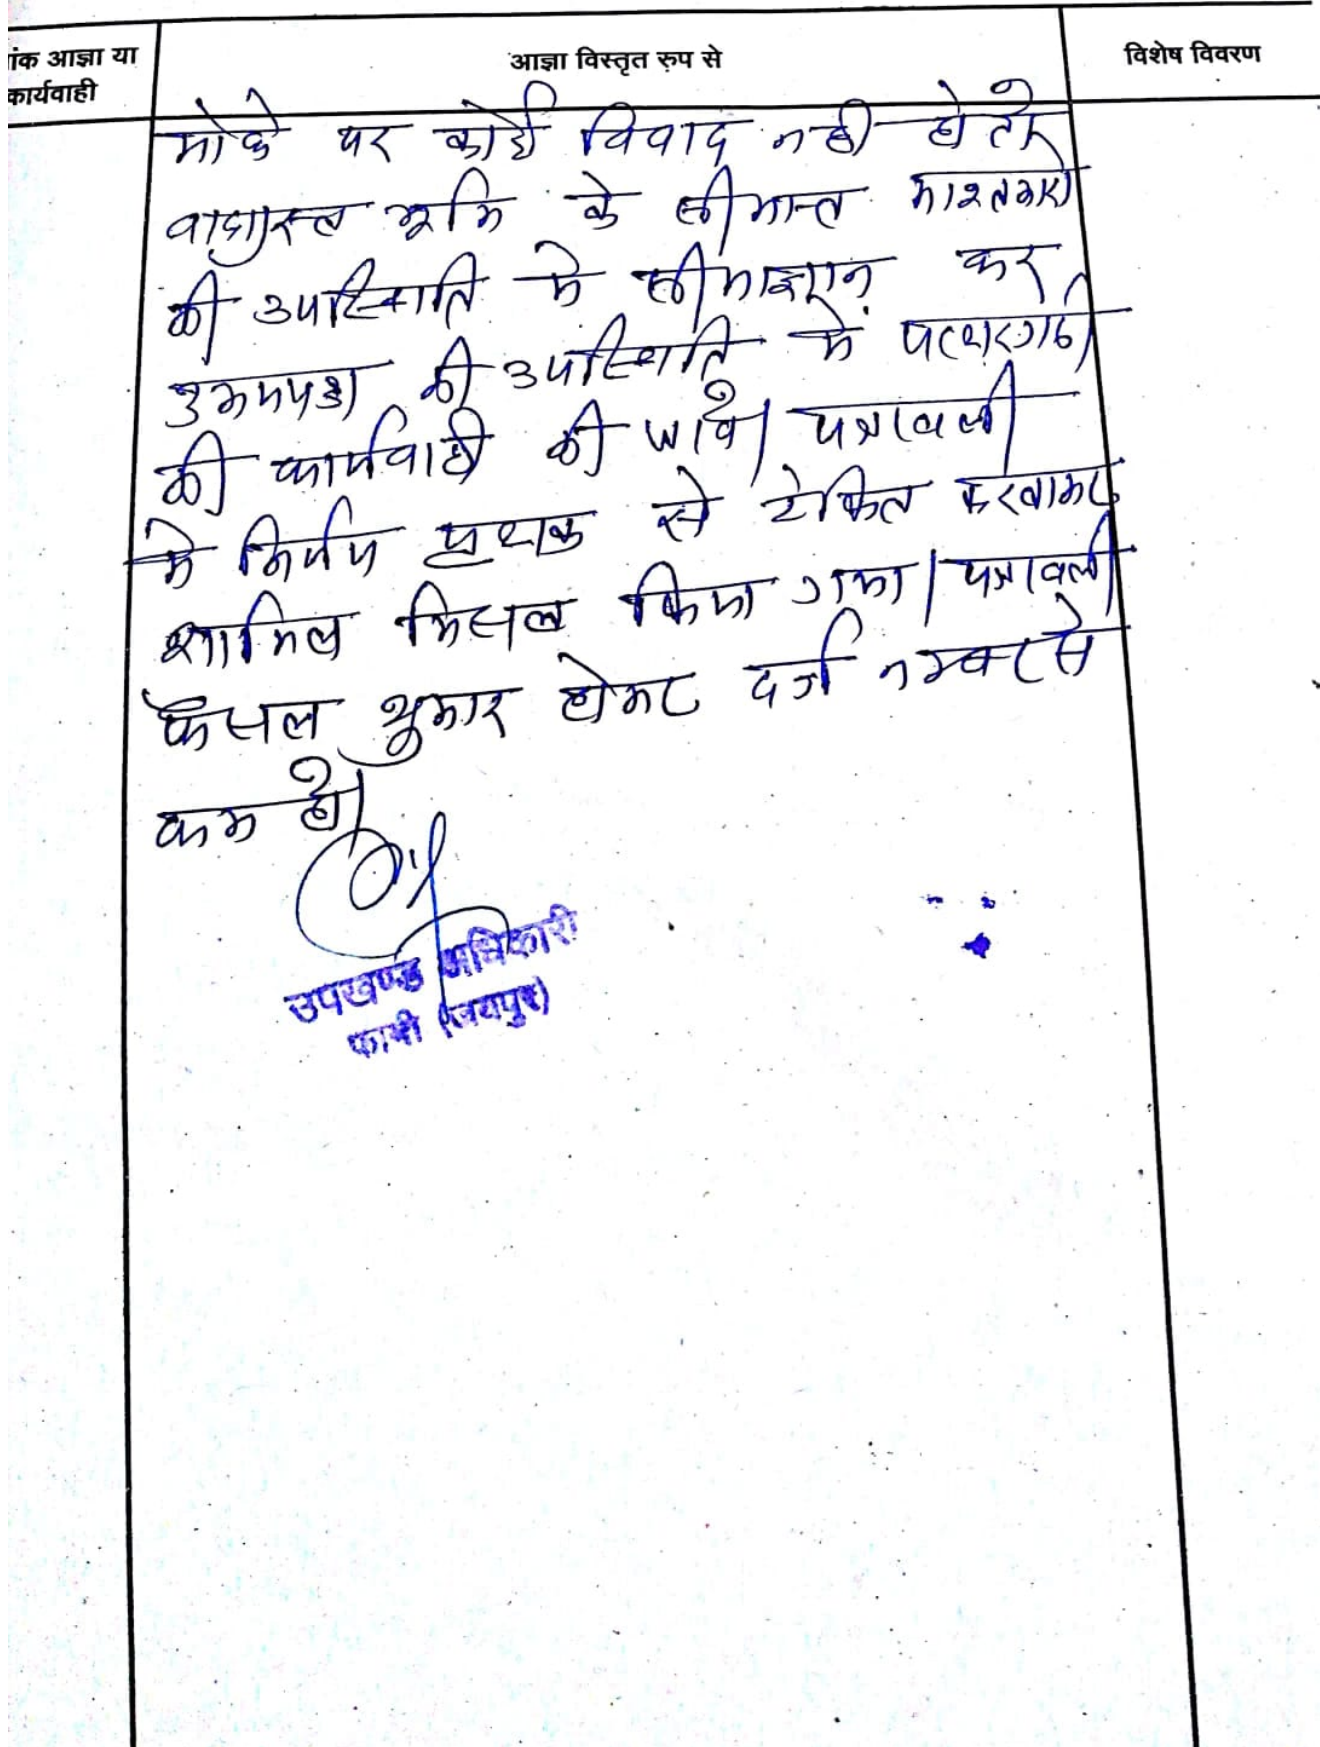 ांक आज्ञा या
कार्यवाही
आज्ञा विस्तृत रुप से
विशेष विवरण
मोके पर कोई विवाद नही हो तो
वादग्रस्त भूमि के सीमान्त काश्तकारो
की उपस्थिति मे सीमाज्ञान कर
उभयपक्ष की उपस्थिति में पत्थरगढी
की कार्यवाही की जावे। पत्रावली
मे निर्णय प्रथक से टंकित करवाकर
शामिल मिसल किया गया। पत्रावली
फैसल शुमार होकर दर्ज नम्बर से
कम हो।
उपखण्ड अधिकारी
फागी (जयपुर)